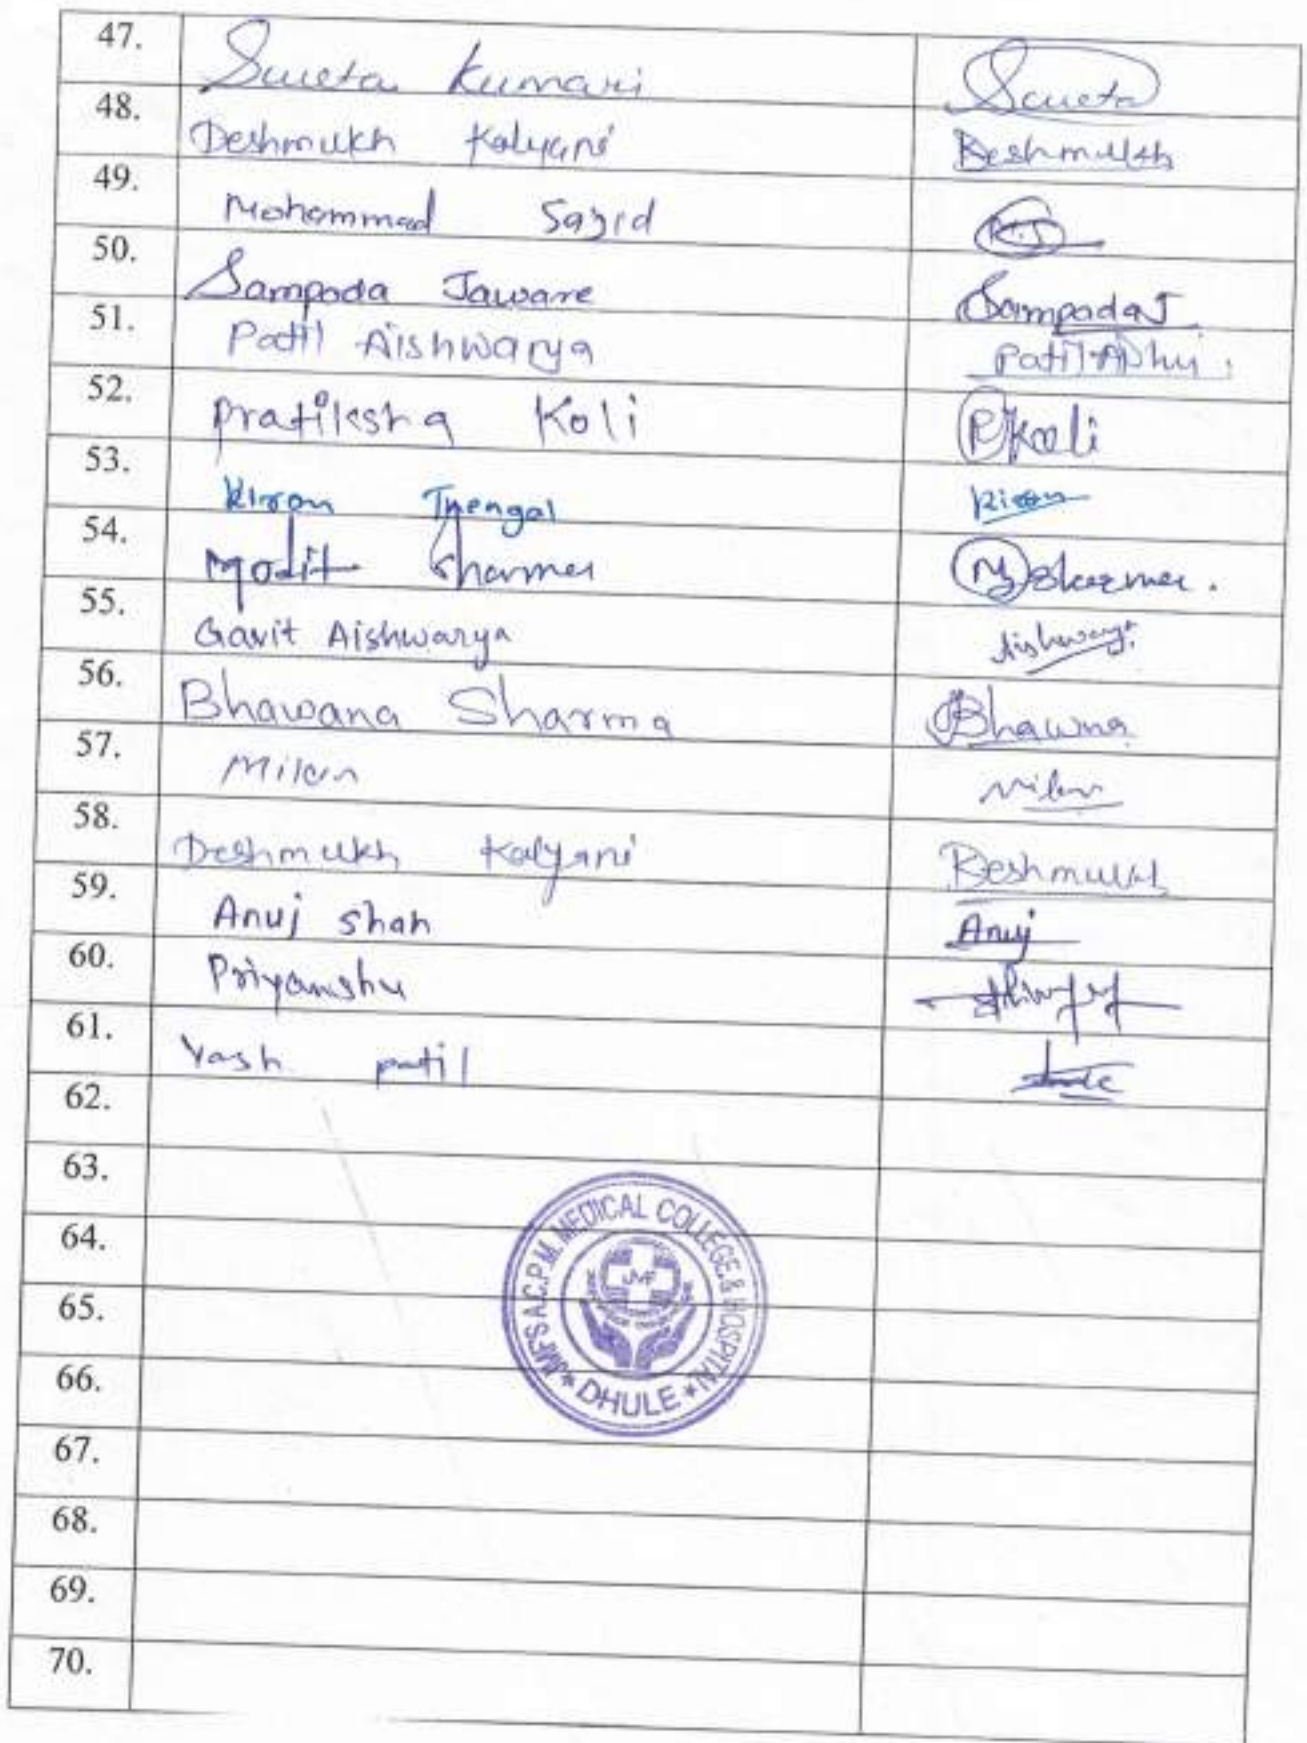 47. Sweta Kumari Sweta
48. Deshmukh Kalyani Deshmukh
49. Mohammad Sajid
50. Sampada Jaware Sampada J
51. Patil Aishwarya Patil
52. Pratiksha Koli P Koli
53. Kiran Thengal Kiran
54. Mohit Sharma M Sharma.
55. Gavit Aishwarya Aishwarya
56. Bhawana Sharma Bhawna
57. Milan Milan
58. Deshmukh Kalyani Deshmukh
59. Anuj Shah Anuj
60. Priyanshu
61. Yash patil
62.
63.
64.
65.
66.
67.
68.
69.
70.
JMF'S A.C.P.M. MEDICAL COLLEGE & HOSPITAL
JMF
* DHULE *